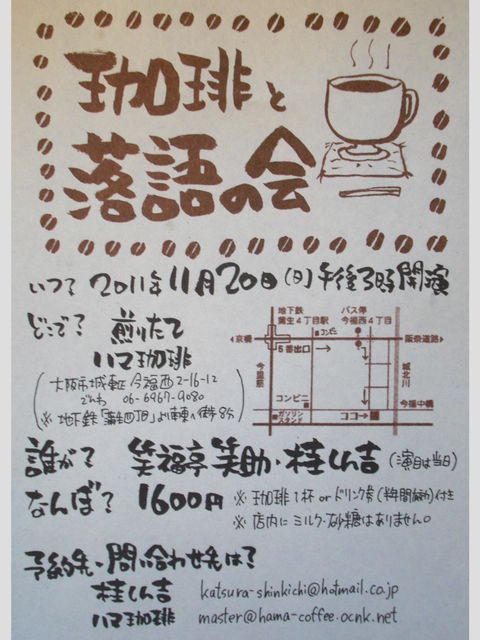 珈琲と
落語の会
いつ? 2011年11月20日(日)午後3時開演
どこで? 煎りたて
ハマ珈琲
大阪市城東区今福西2-16-12
でんわ 06-6967-9080
※地下鉄「蒲生四丁目」より東へ徒歩8分
地下鉄
蒲生4丁目駅
バス停
今福西4丁目
コンビニ
京橋
阪奈道路
6番出口
今里筋
城北川
コンビニ
今福中橋
ガソリン
スタンド
ココ→
誰が? 笑福亭笑助・桂しん吉(演目は当日)
なんぼ? 1600円 ※珈琲1杯orドリンク券(半年間有効)付き
※店内にミルク・砂糖はありません。
予約先・問い合わせ先は?
桂しん吉 katsura-shinkichi@hotmail.co.jp
ハマ珈琲 master@hama-coffee.ocnk.net